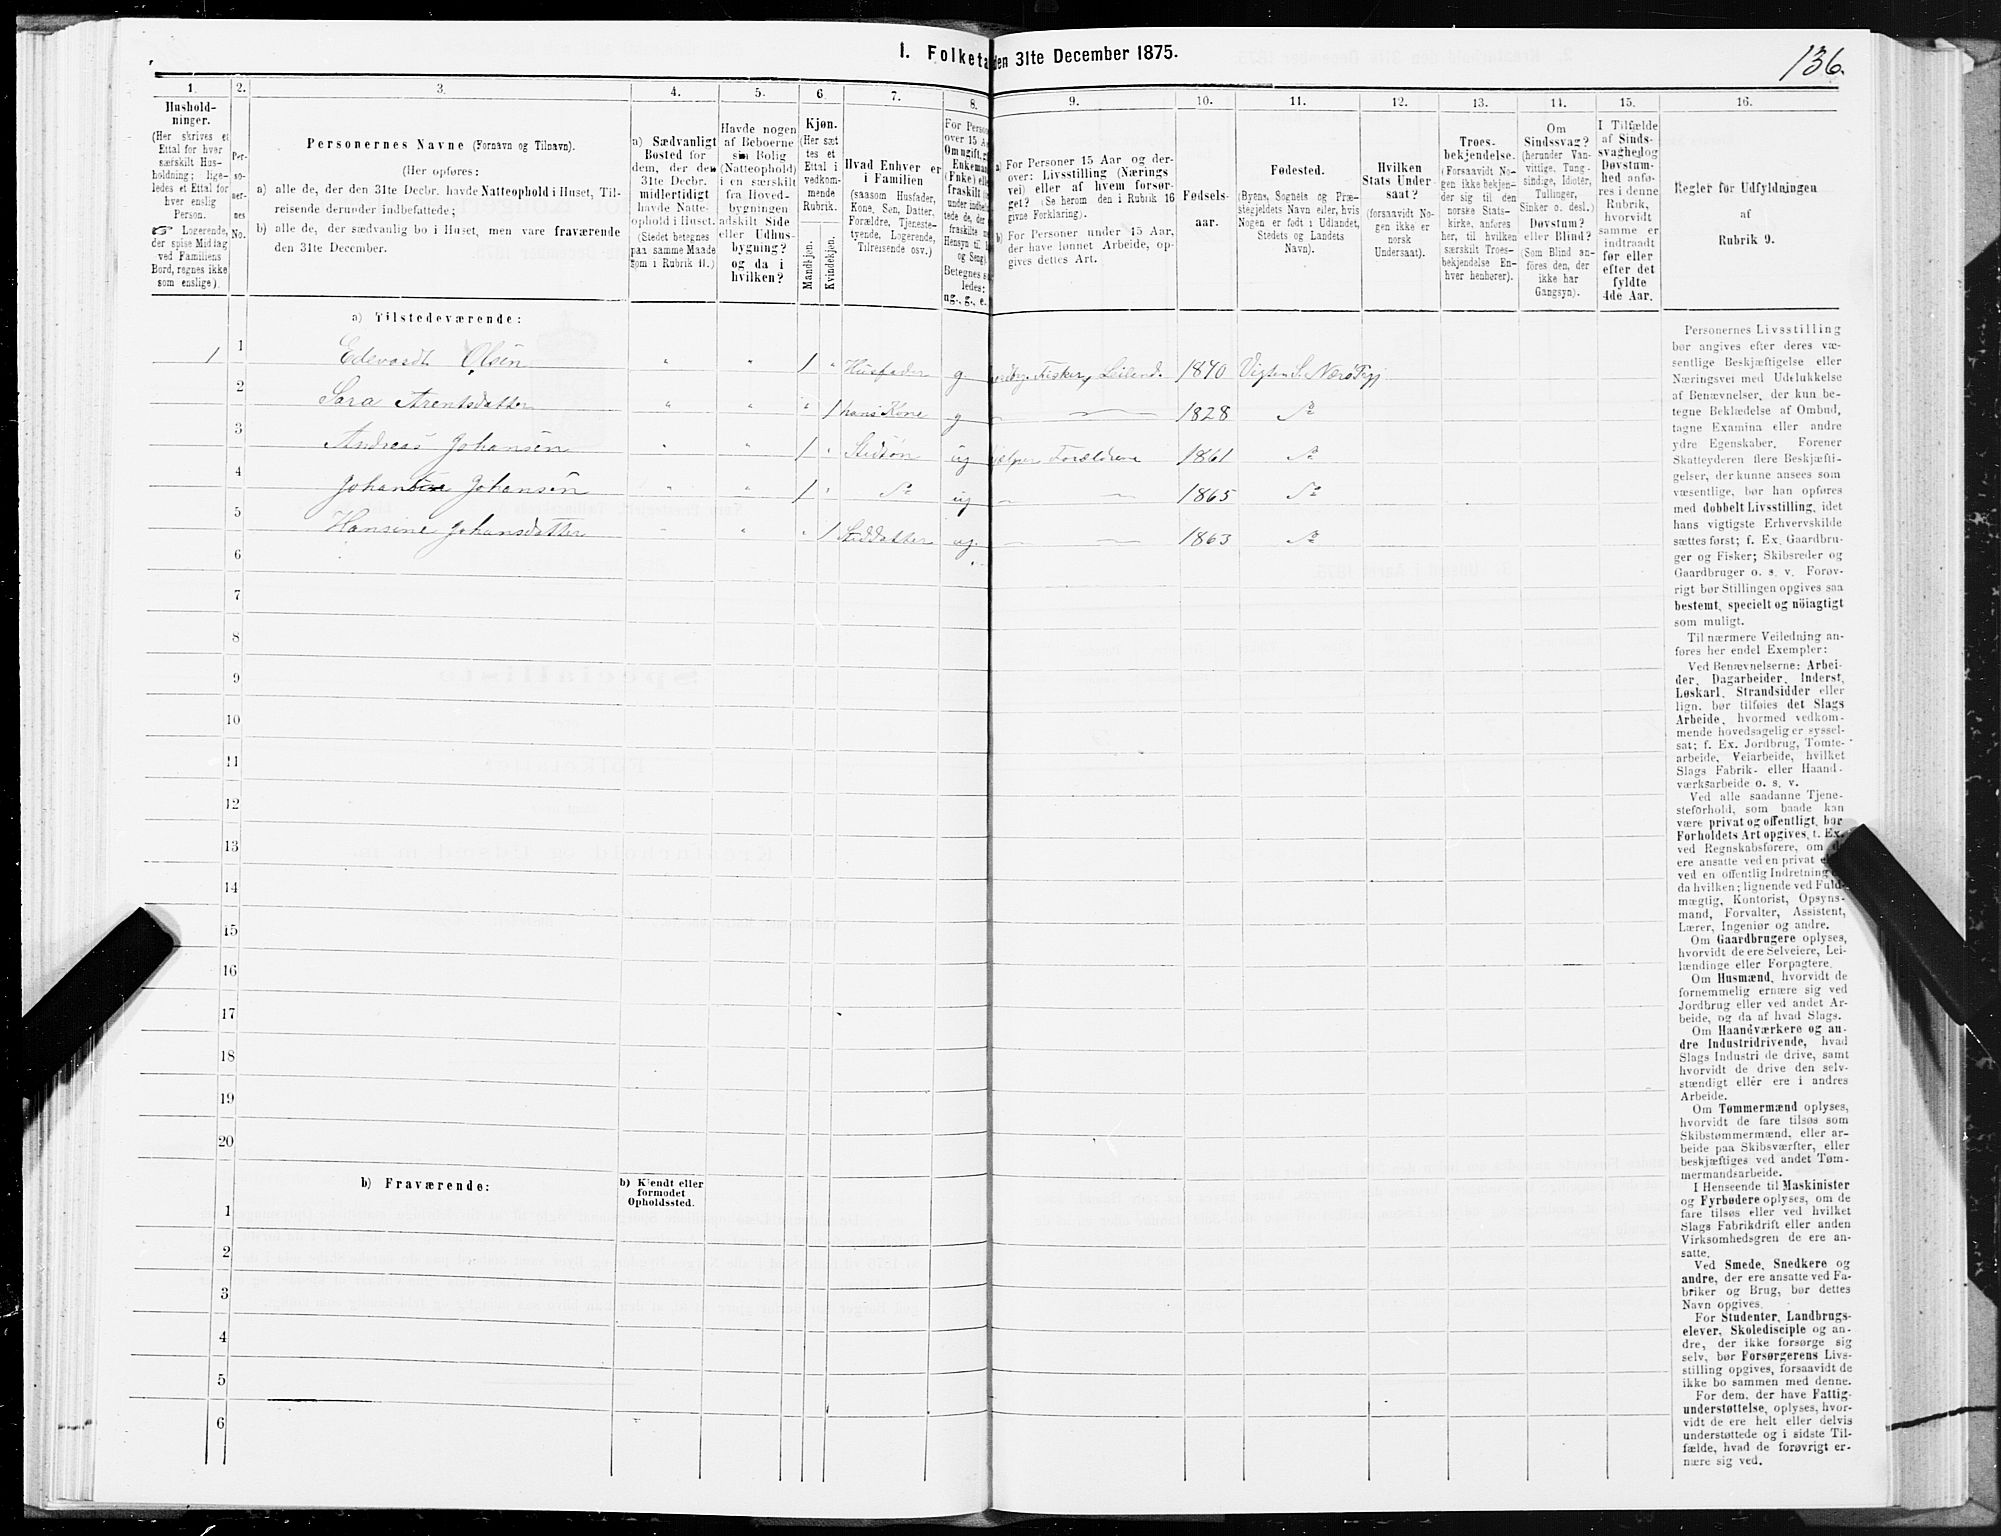 136.
1. Folketa den 31te December 1875.
1. 2. 3. 4. 5. 6. 7. 8. 9. 10. 11. 12. 13. 14. 15. 16.
Hushold-
ninger.
(Her skrives et
Ettal for hver
særskilt Hus-
holdning; lige-
ledes et Ettal for
hver enslig
Person.
☞ Logerende,
der spise Middag
ved Familiens
Bord, regnes ikke
som enslige).
Per-
so-
ner-
nes
No.
Personernes Navne (Fornavn og Tilnavn).
(Her opføres:
a) alle de, der den 31te Decbr. havde Natteophold i Huset, Til-
reisende derunder indbefattede;
b) alle de, der sædvanlig bo i Huset, men vare fraværende
den 31te December.
a) Sædvanligt
Bosted for
dem, der den
31te Decbr.
midlertidigt
havde Natte-
ophold i Huset.
(Stedet betegnes
paa samme Maade
som i Rubrik 11.)
Havde nogen
af Beboerne
sin Bolig
(Natteophold)
i en særskilt
fra Hoved-
bygningen
adskilt Side
eller Udhus-
bygning?
og da i
hvilken?
Kjøn.
(Her sæt
tes et
Ettal i
vedkom-
mende
Rubrik.
Mandkjøn.
Kvindekjøn.
Hvad Enhver er
i Familien
(saasom Husfader,
Kone, Søn, Datter,
Forældre, Tjeneste-
tyende, Logerende,
Tilreisende osv.)
For Perso
over 15 Aar
Om ugift, g
Enkeman
(Enke) elle
fraskilt
under indbefat
tede de, der
fraskilte
Hensyn til
og Seng).
Betegnes s
ledes:
ug., g., e.
a) For Personer 15 Aar og der-
over: Livsstilling (Nærings
vei) eller af hvem forsør-
get? (Se herom den i Rubrik 16
givne Forklaring).
b) For Personer under 15 Aar,
der have lønnet Arbeide, op-
gives dettes Art.
Fødsels-
aar.
Fødested.
(Byens, Sognets og Præ-
stegjeldets Navn eller, hvis
Nogen er født i Udlandet,
Stedets og Landets
Navn).
Hvilken
Stats Under-
saat?
(forsaavidt No-
gen ikke er
norsk
Undersaat).
Troes-
bekjendelse.
(Forsaavidt No-
gen ikke bekjen-
der sig til den
norske Stats-
kirke, anføres
her, til hvilken
særskilt Troes-
bekjendelse En-
hver henhører).
Om
Sindssvag?
(herunder Van-
vittige, Tung-
sindige, Idioter,
Tullinger,
Sinker o. desl.)
Døvstum?
eller Blind?
(Som Blind an-
føres den, der
ikke har
Gangsyn).
I Tilfælde
af Sinds-
svaghed og
Døvstum-
hed anfø-
res i denne
Rubrik,
hvorvidt
samme er
indtraadt
før eller
efter det
fyldte
4de Aar.
Regler for Udfyldningen
af
Rubrik 9.
a) Tilstedeværende:
1 1 Edevardt Olsen " " 1 " Husfader g Fisker, Leilend. 1840 Vigten S. Nærø Pgj
2 Sara Arentsdatter " " " 1 hans Kone g — — 1828 Do
3 Andreas Johansen " " 1 " Stedsøn ug Forældrene 1861 Do
4 Johansen " " 1 " Do ug — — 1865 Do
5 Hansine Johansdatter " " " 1 Steddatter ug. — — 1863 Do
6
7
8
9
10
11
12
13
14
15
16
17
18
19
20
b) Fraværende: b) Kjendt eller
formodet
Opholdssted.
1
2
3
4
5
6
Personernes Livsstilling
bør angives efter deres væ-
sentlige Beskjæftigelse eller
Næringsvei med Udelukkelse
af Benævnelser, der kun be-
tegne Beklædelse af Ombud,
tagne Examina eller andre
ydre Egenskaber. Forener
Skatteyderen flere Beskjæfti-
gelser, der kunne ansees som
væsentlige, bør han opføres
med dobbelt Livsstilling, idet
hans vigtigste Erhvervskilde
sættes først; f. Ex. Gaardbru-
ger og Fisker; Skibsreder og
Gaardbruger o. s. v. Forøv-
rigt bør Stillingen opgives saa
bestemt, specielt og nöiagtigt
som muligt.
Til nærmere Veiledning an-
føres her endel Exempler:
Ved Benævnelserne: Arbei-
der, Dagarbeider, Inderst,
Løskarl, Strandsidder eller
lign. bør tilføies det Slags
Arbeide, hvormed vedkom-
mende hovedsagelig er syssel-
sat; f. Ex. Jordbrug, Tomte-
arbeide, Veiarbeide, hvilket
Slags Fabrik- eller Haand-
værksarbeide o. s. v.
Ved alle saadanne Tjene-
steforhold, som baade kan
være privat og offentligt, bør
Forholdets Art opgives, t. Ex.
ved Regnskabsførere, om de
ere ansatte ved en privat
ved en offentlig Indretning
da hvilken; lignende ved Fuld-
mægtig, Kontorist, Opsyns-
mand, Forvalter, Assistent,
Lærer, Ingeniør og andre.
Om Gaardbrugere oplyses,
hvorvidt de ere Selveiere, Lei-
lændinge eller Forpagtere.
Om Husmænd, hvorvidt de
fornemmelig ernære sig ved
Jordbrug eller ved andet Ar-
beide, og da af hvad Slags.
Om Haandværkere og an-
dre Industridrivende, hvad
Slags Industri de drive, samt
hvorvidt de drive den selv-
stændigt eller ere i andres
Arbeide.
Om Tømmermænd oplyses,
hvorvidt de fare tilsøs som
Skibstømmermænd, eller ar-
beide paa Skibsværfter, eller
beskjæftiges ved andet Tøm-
mermandsarbeide.
I Henseende til Maskinister
og Fyrbødere oplyses, om de
fare tilsøs eller ved hvilket
Slags Fabrikdrift eller anden
Virksomhedsgren de ere an-
satte.
Ved Smede, Snedkere og
andre, der ere ansatte ved Fa-
briker og Brug, bør dettes
Navn opgives.
For Studenter, Landbrugs-
elever, Skoledisciple og an-
dre, der ikke forsørge sig
selv, bør Forsørgerens Livs-
stilling opgives, forsaavidt de
ikke bo sammen med denne.
For dem, der have Fattig-
understøttelse, oplyses, hvor-
vidt de ere helt eller delvis
understøttede og i sidste Til-
fælde, hvad de forøvrigt er-
nære sig ved.